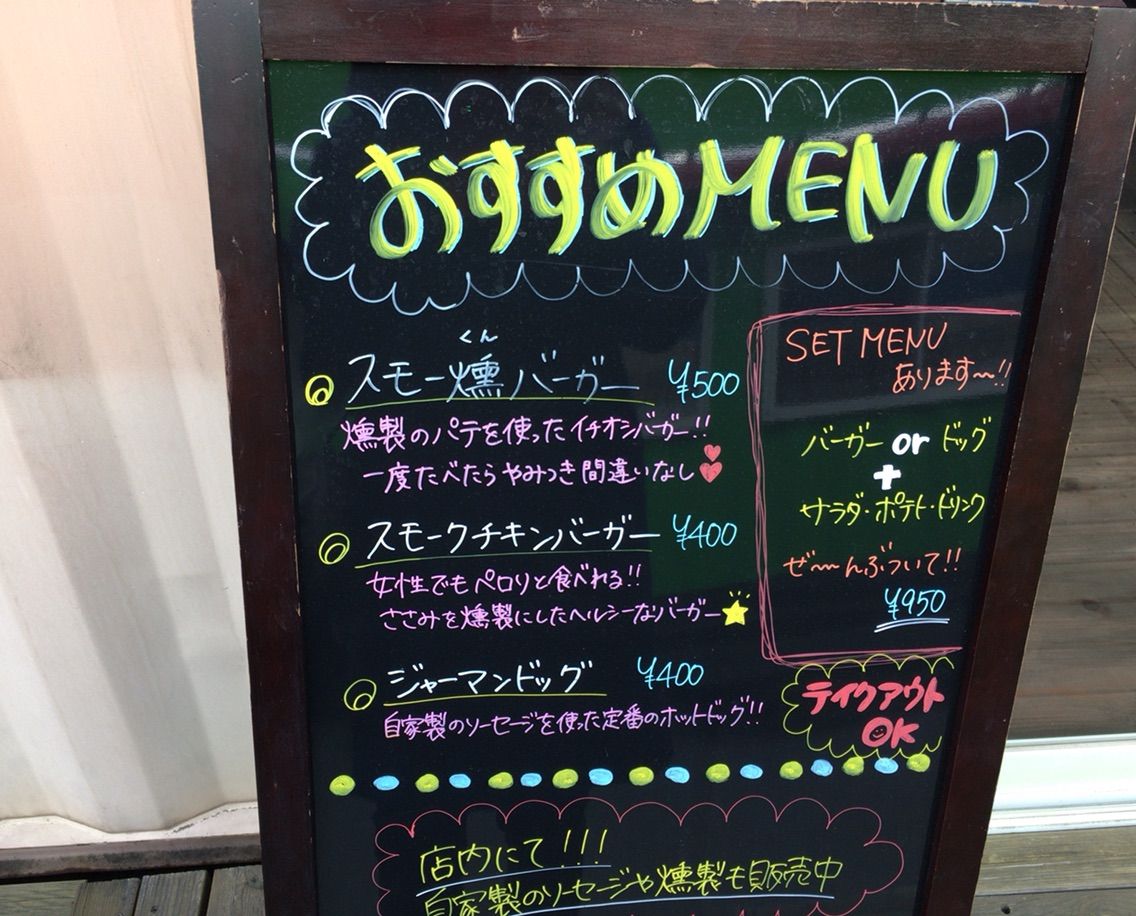 おすすめMENU
くん
スモー燻バーガー ¥500
燻製のパテを使ったイチオシバーガー!!
一度たべたらやみつき間違いなし
スモークチキンバーガー ¥400
女性でもペロリと食べれる!!
ささみを燻製にしたヘルシーなバーガー
ジャーマンドッグ ¥400
自家製のソーセージを使った定番のホットドッグ!!
SET MENU
あります〜!!
バーガー or ドッグ
+
サラダ・ポテト・ドリンク
ぜ〜んぶついて!!
¥950
テイクアウト
OK
店内にて!!!
自家製のソーセージや燻製も販売中